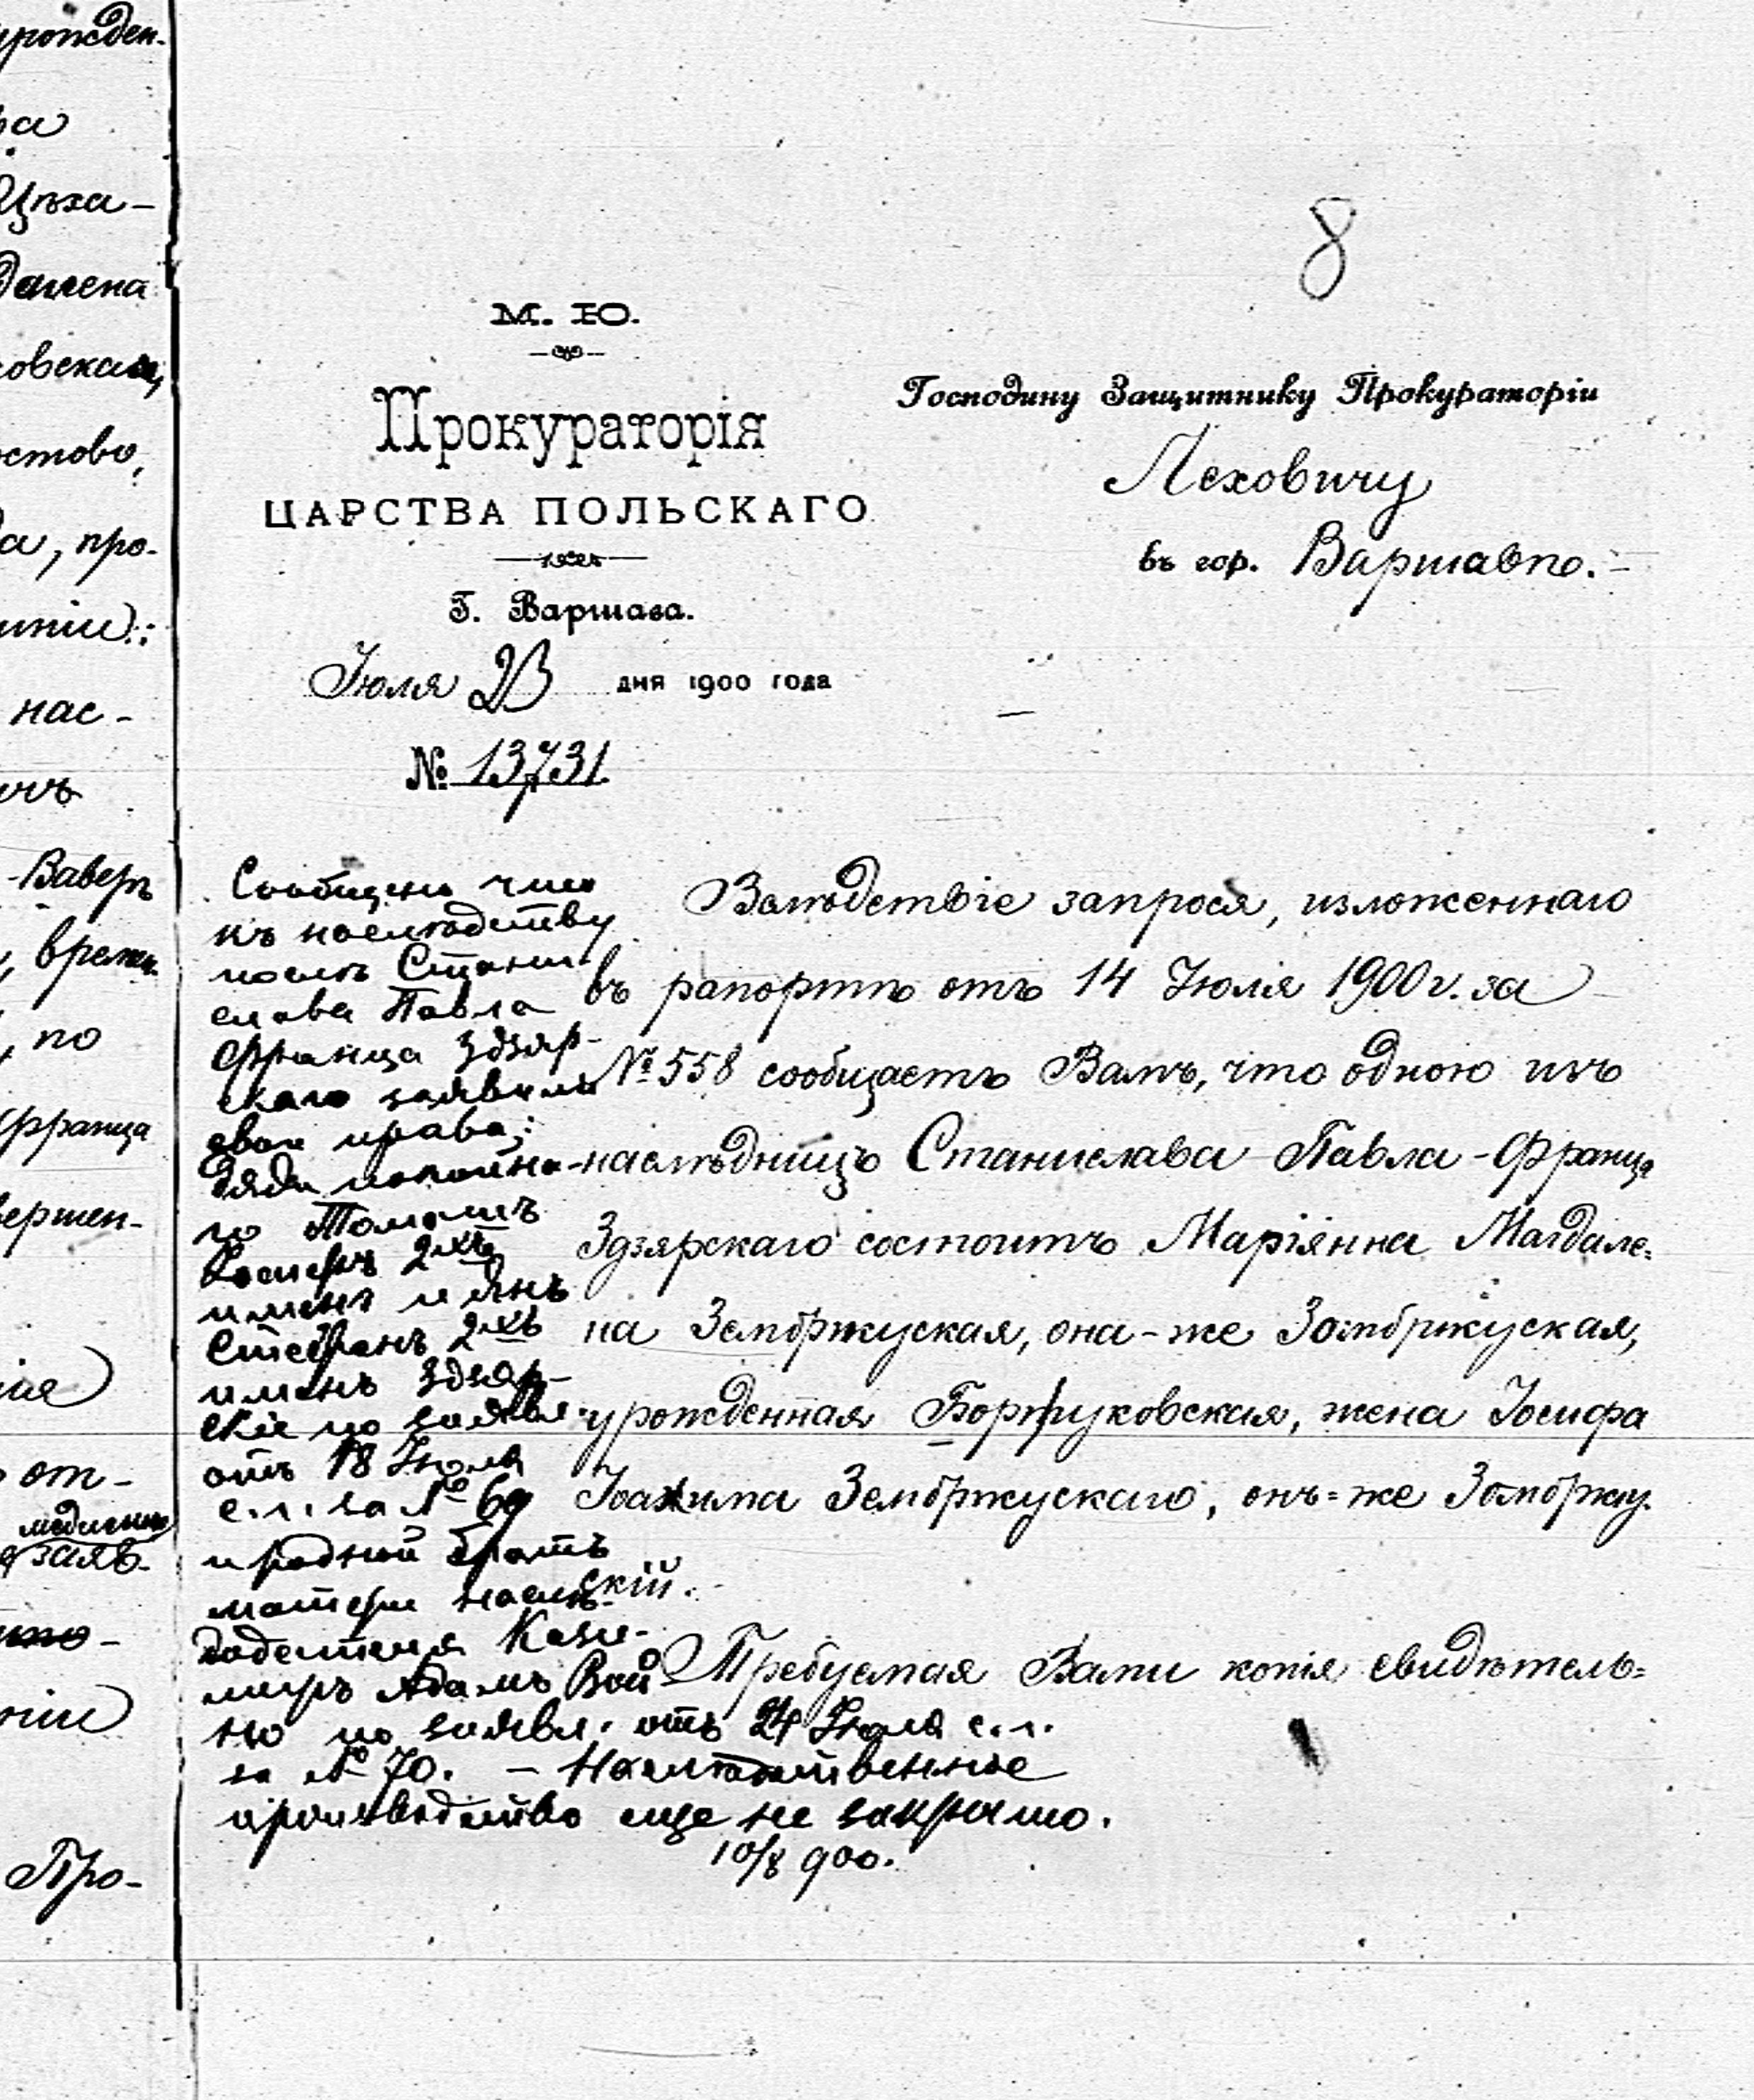 урожден-
ра
Цѣха-
далена
ковская,
а, про-
нас-
-Ваверъ
по
Франца
вершен-
от-
заяв-
Про-
8
М. Ю.
Прокураторія
ЦАРСТВА ПОЛЬСКАГО
Г. Варшава.
Іюля 23 дня 1900 года
№ 13731.
Господину Защитнику Прокураторіи
Леховичу
въ гор. Варшавѣ.
Сообщено что
къ наслѣдству
послѣ Стани
слава Павла
Франца Здзяр-
скаго заявили
свои права:
дяди покойна-
го Томашъ
2хъ
именъ и Янъ
Стефанъ 2хъ
именъ Здзяр-
скіе по заявл.
отъ 18 Іюля
с. г. за № 69
и родной братъ
матери наслѣ-
додателя Кази-
миръ Адамъ Вой
но по заявл. отъ 24 Іюля с. г.
за № 70. – Наслѣдственное
производство еще не закрыто.
10/8 900.
Вслѣдствіе запроса, изложеннаго
въ рапортѣ отъ 14 Іюля 1900 г. за
№ 558 сообщаетъ Вамъ, что одною изъ
наслѣдницъ Станислава Павла-Франца
Здзярскаго состоитъ Маріянна Магдале=
на Зембржуская, она-же Зомбржуская,
урожденная Боржуковская, жена Іосифа
Іоахима Зембржускаго, онъ=же Зомбржу-
скій.
Требуемая Вами копія свидѣтель=